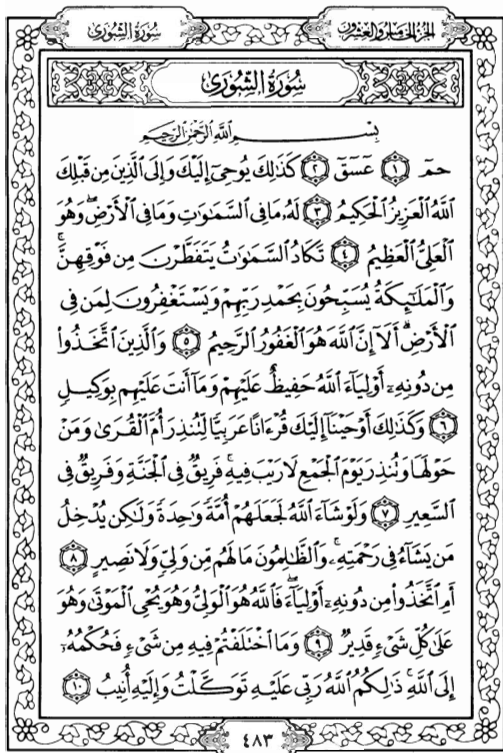 سُورَةُ الشُّورَىٰ
الجُزْءُ الخَامِسُ وَالعِشْرُونَ
سُورَةُ الشُّورَىٰ
بِسْمِ اللَّهِ الرَّحْمَٰنِ الرَّحِيمِ
حمٓ ١ عٓسٓقٓ ٢ كَذَٰلِكَ يُوحِىٓ إِلَيْكَ وَإِلَى ٱلَّذِينَ مِن قَبْلِكَ
ٱللَّهُ ٱلْعَزِيزُ ٱلْحَكِيمُ ٣ لَهُۥ مَا فِى ٱلسَّمَٰوَٰتِ وَمَا فِى ٱلْأَرْضِ ۖ وَهُوَ
ٱلْعَلِىُّ ٱلْعَظِيمُ ٤ تَكَادُ ٱلسَّمَٰوَٰتُ يَتَفَطَّرْنَ مِن فَوْقِهِنَّ ۚ
وَٱلْمَلَٰٓئِكَةُ يُسَبِّحُونَ بِحَمْدِ رَبِّهِمْ وَيَسْتَغْفِرُونَ لِمَن فِى
ٱلْأَرْضِ ۗ أَلَآ إِنَّ ٱللَّهَ هُوَ ٱلْغَفُورُ ٱلرَّحِيمُ ٥ وَٱلَّذِينَ ٱتَّخَذُوا۟
مِن دُونِهِۦٓ أَوْلِيَآءَ ٱللَّهُ حَفِيظٌ عَلَيْهِمْ وَمَآ أَنتَ عَلَيْهِم بِوَكِيلٍ
٦ وَكَذَٰلِكَ أَوْحَيْنَآ إِلَيْكَ قُرْءَانًا عَرَبِيًّا لِّتُنذِرَ أُمَّ ٱلْقُرَىٰ وَمَنْ
حَوْلَهَا وَتُنذِرَ يَوْمَ ٱلْجَمْعِ لَا رَيْبَ فِيهِ ۚ فَرِيقٌ فِى ٱلْجَنَّةِ وَفَرِيقٌ فِى
ٱلسَّعِيرِ ٧ وَلَوْ شَآءَ ٱللَّهُ لَجَعَلَهُمْ أُمَّةً وَٰحِدَةً وَلَٰكِن يُدْخِلُ
مَن يَشَآءُ فِى رَحْمَتِهِۦ ۚ وَٱلظَّٰلِمُونَ مَا لَهُم مِّن وَلِىٍّ وَلَا نَصِيرٍ ٨
أَمِ ٱتَّخَذُوا۟ مِن دُونِهِۦٓ أَوْلِيَآءَ ۖ فَٱللَّهُ هُوَ ٱلْوَلِىُّ وَهُوَ يُحْىِ ٱلْمَوْتَىٰ وَهُوَ
عَلَىٰ كُلِّ شَىْءٍ قَدِيرٌ ٩ وَمَا ٱخْتَلَفْتُمْ فِيهِ مِن شَىْءٍ فَحُكْمُهُۥٓ
إِلَى ٱللَّهِ ۚ ذَٰلِكُمُ ٱللَّهُ رَبِّى عَلَيْهِ تَوَكَّلْتُ وَإِلَيْهِ أُنِيبُ ١٠
٤٨٣